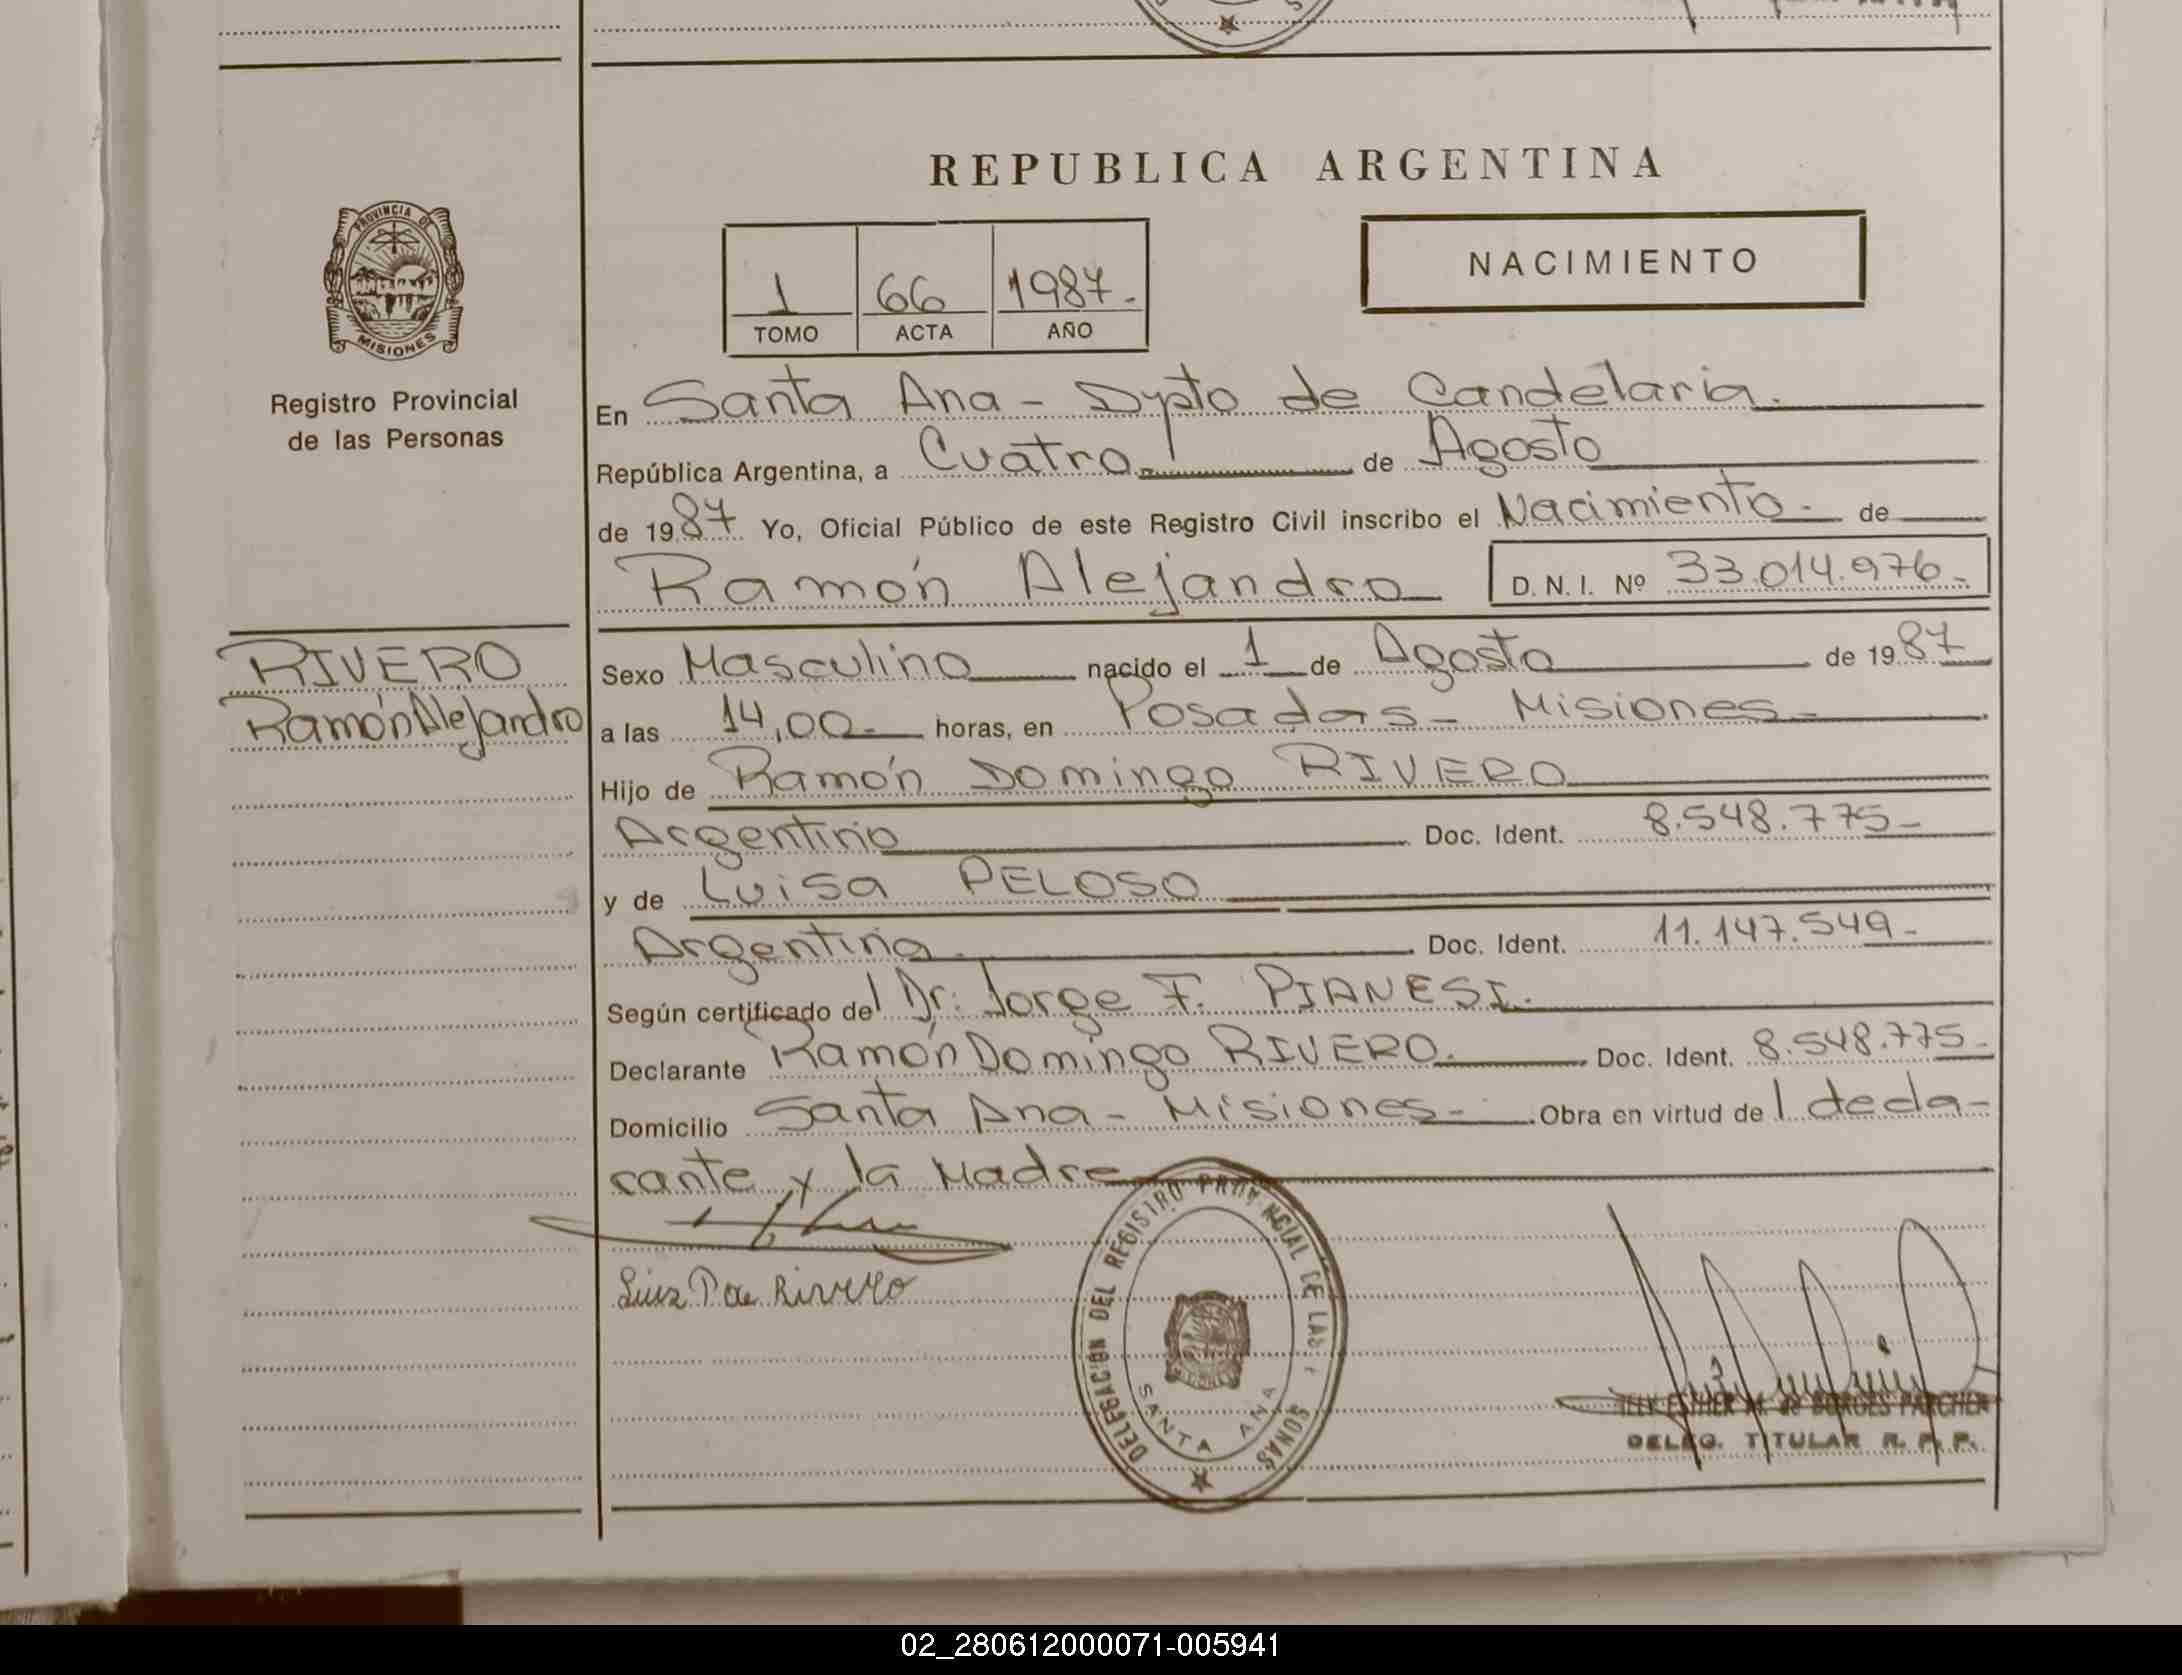 REPUBLICA ARGENTINA
PROVINCIA DE
MISIONES
Registro Provincial
de las Personas
1 66 1987.
TOMO ACTA AÑO
NACIMIENTO
En Santa Ana - Dpto de Candelaria.
República Argentina, a Cuatro de Agosto
de 1987 Yo, Oficial Público de este Registro Civil inscribo el Nacimiento. de
Ramón Alejandro D.N.I. Nº 33.014.976-
RIVERO
Ramón Alejandro
Sexo Masculino nacido el 1 de Agosto de 1987
a las 14,00 horas, en Posadas - Misiones-
Hijo de Ramón Domingo RIVERO
Argentino Doc. Ident. 8.548.775-
y de Luisa PELOSO
Argentina. Doc. Ident. 11.147.549-
Según certificado del Dr. Jorge F. PIANESI.
Declarante Ramón Domingo RIVERO. Doc. Ident. 8.548.775-
Domicilio Santa Ana - Misiones- Obra en virtud del decla-
rante y la Madre
de Rivero
DELEGACIÓN DEL REGISTRO PROVINCIAL DE LAS
SANTA ANA
ESTHER M. de BORGES
DELEG. TITULAR R. P. P.
02_280612000071-005941